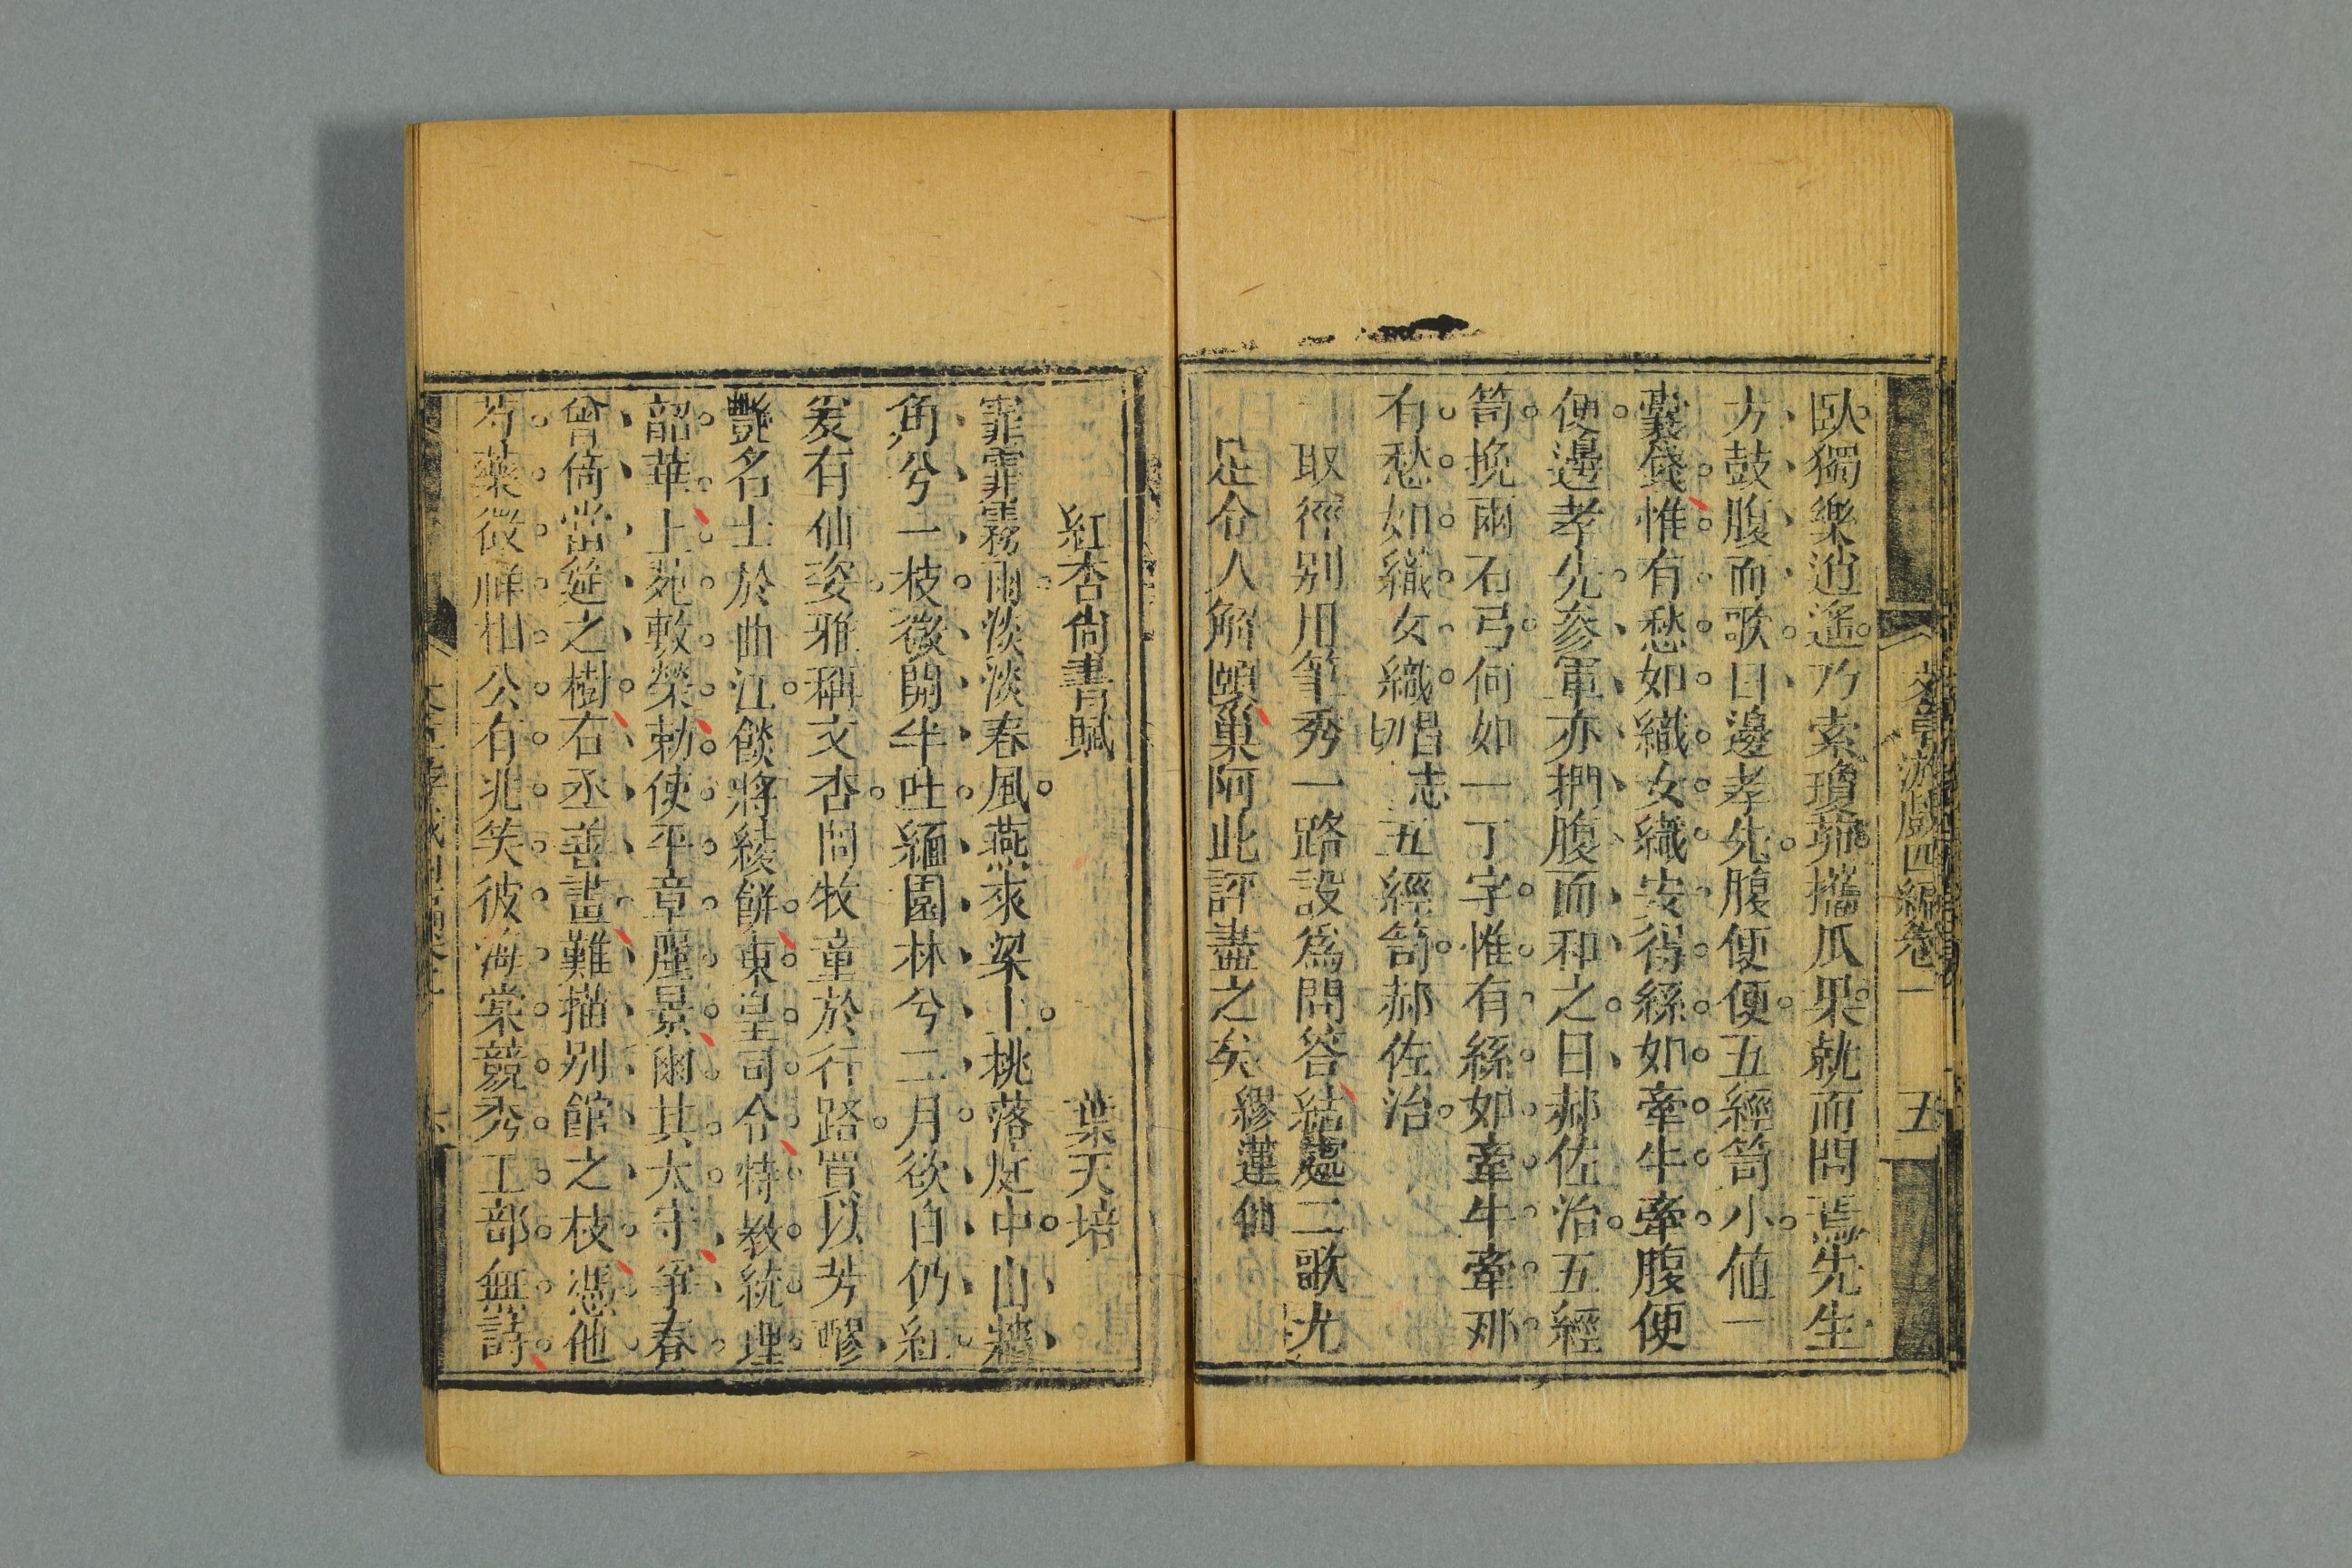 文章游戲四編卷一 五
臥獨樂逍遙乃索瓊茆擕瓜果就而問焉先生
方鼓腹而歌曰邊孝先腹便便五經笥小値一
囊錢惟有愁如織女織安得絲如牽牛牽腹便
便邊孝先參軍亦捫腹而和之曰郝佐治五經
笥挽兩石弓何如一丁字惟有絲如牽牛牽那
有愁如織女織唱志切五經笥郝佐治
取徑别用筆秀一路設爲問答結處二歌尤
足令人解頤巢阿此評盡之矣繆蓮仙
紅杏尙書賦 葉天培
霏霏霧雨淡淡春風燕來梁上桃落庭中山牆
角兮一枝微開半吐緬園林兮二月欲白仍紅
爰有仙姿雅稱文杏問牧童於行路買以芳醪
艷名士於曲江餤將綾餅東皇司令特教統理
韶華上苑敷榮勅使平章麗景爾其太守爭春
曾倚當筵之樹右丞善畫難描别館之枝憑他
芍藥徵祥相公有兆笑彼海棠競秀工部無詩